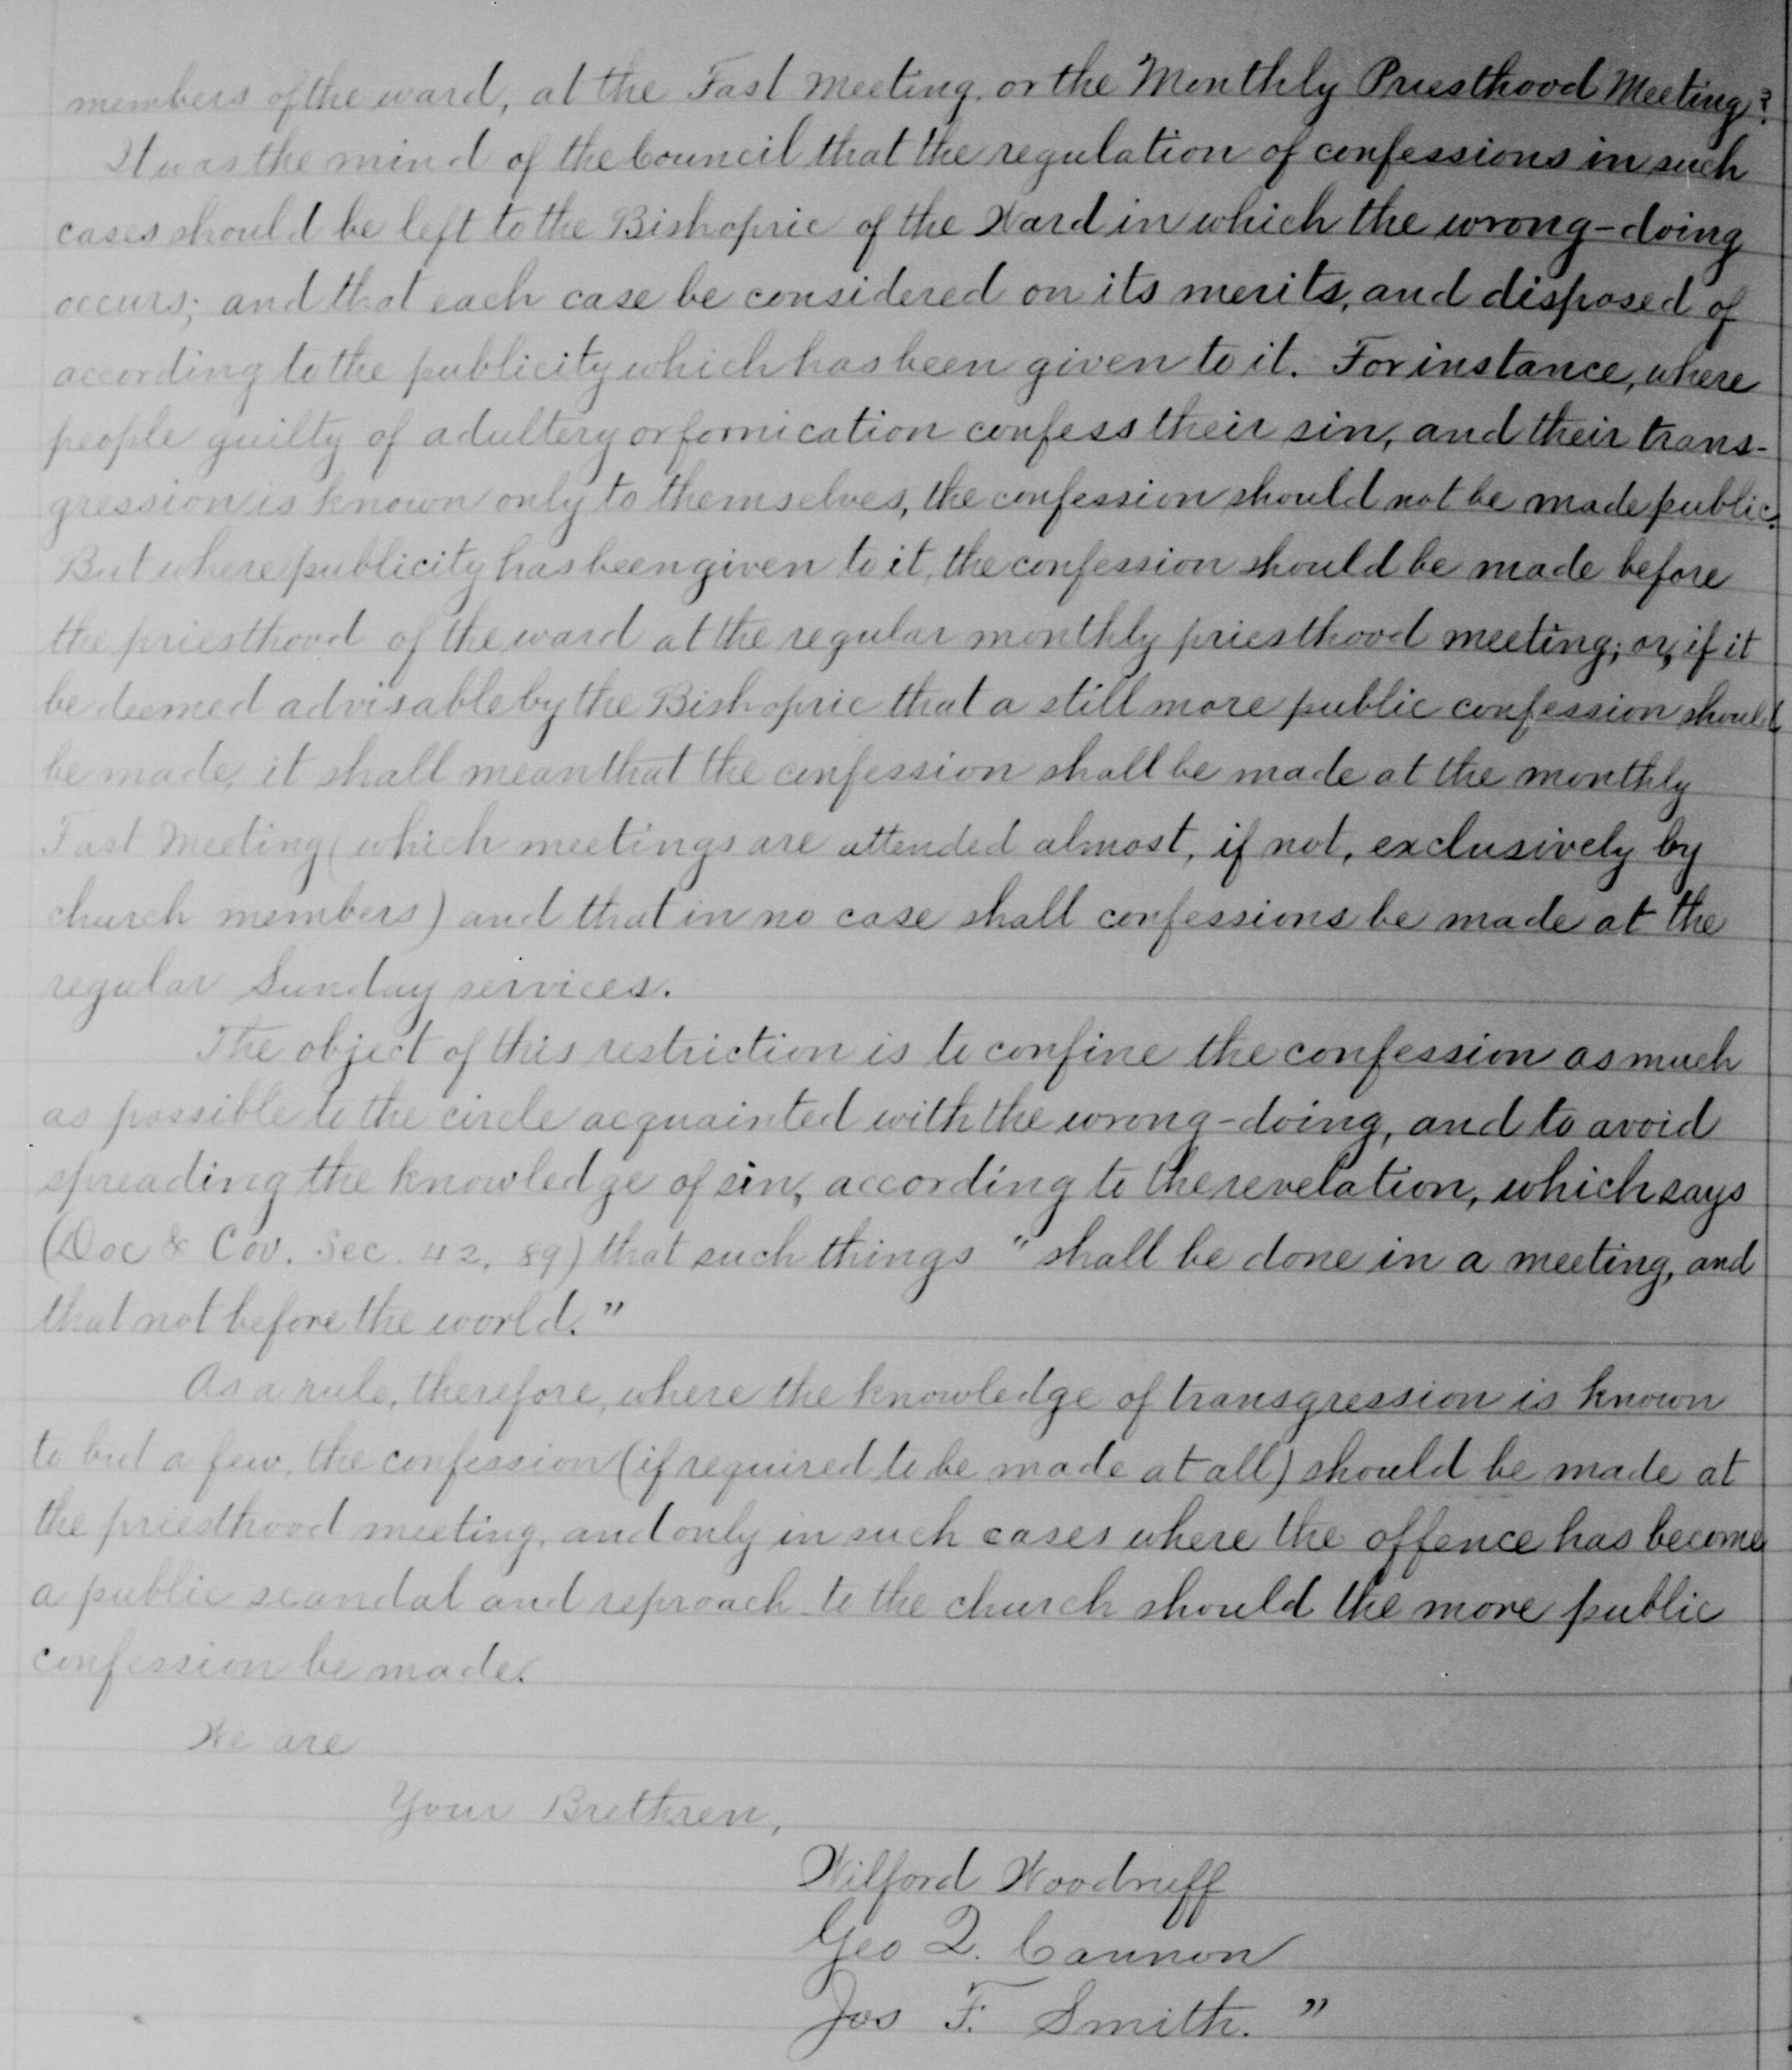 members of the ward, at the Fast Meeting, or the Monthly Priesthood Meeting?
It was the mind of the Council that the regulation of confessions in such
cases should be left to the Bishopric of the Ward in which the wrong-doing
occurs; and that each case be considered on its merits, and disposed of
according to the publicity which has been given to it. For instance, where
people guilty of adultery or fornication confess their sin, and their trans-
gression is known only to themselves, the confession should not be made public.
But where publicity has been given to it, the confession should be made before
the priesthood of the ward at the regular monthly priesthood meeting; or, if it
be deemed advisable by the Bishopric that a still more public confession should
be made, it shall mean that the confession shall be made at the monthly
Fast Meeting (which meetings are attended almost, if not, exclusively by
church members) and that in no case shall confessions be made at the
regular Sunday services.
The object of this restriction is to confine the confession as much
as possible to the circle acquainted with the wrong-doing, and to avoid
spreading the knowledge of sin, according to the revelation, which says
(Doc & Cov. Sec. 42, 89) that such things "shall be done in a meeting, and
that not before the world."
As a rule, therefore, where the knowledge of transgression is known
to but a few, the confession (if required to be made at all) should be made at
the priesthood meeting, and only in such cases where the offence has become
a public scandal and reproach to the church should the more public
confession be made.
We are
Your Brethren,
Wilford Woodruff
Geo Q. Cannon
Jos F. Smith."